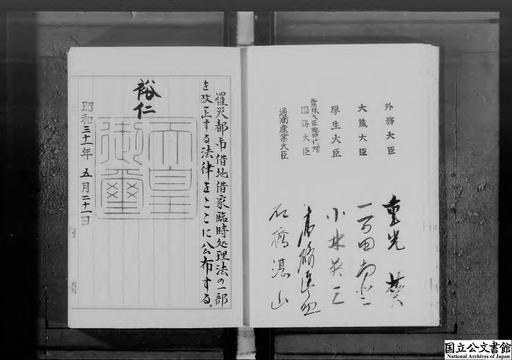 罹災都市借地借家臨時処理法の一部
を改正する法律をここに公布する
裕仁
天皇
御璽
昭和三十一年 五月二十一日
外務大臣 重光 葵
大蔵大臣 一万田尚登
厚生大臣 小林英三
農林大臣臨時代理
国務大臣 高碕達之助
通商産業大臣 石橋湛山
国立公文書館
National Archives of Japan